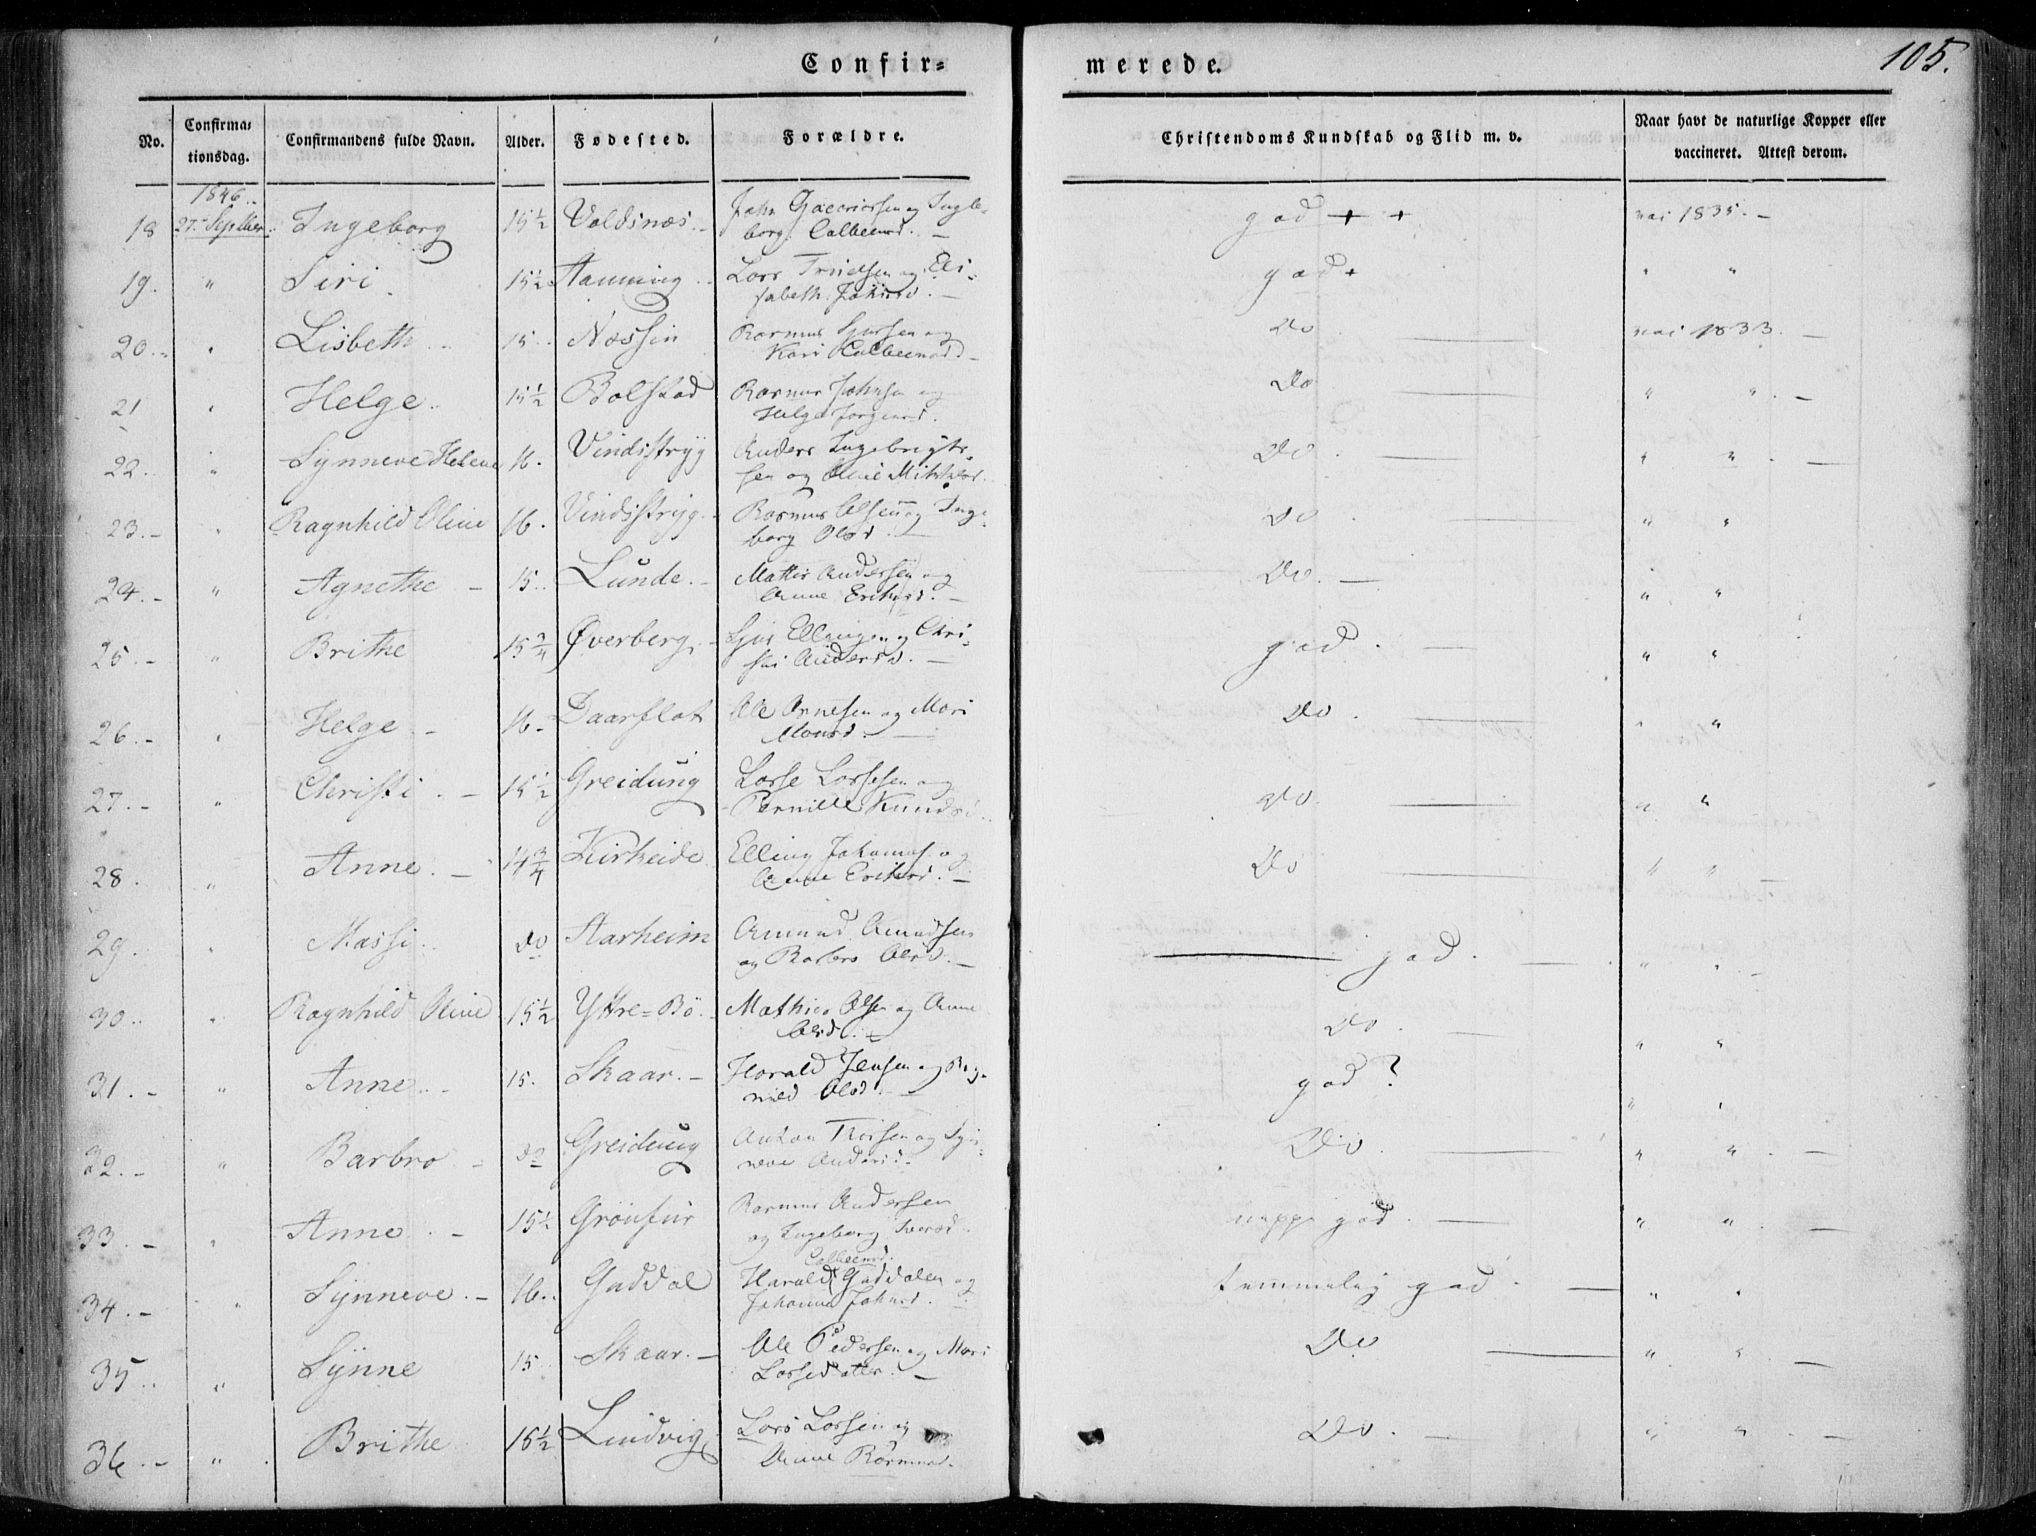 Confir=
merede.
105.
No.
Confirma=
tionsdag.
Confirmandens fulde Navn.
Alder.
Fødested.
Forældre.
Christendoms Kundskab og Flid m. v.
Naar havt de naturlige Kopper eller
vaccineret. Attest derom.
1846.
18 27 Septber Ingeborg 15½ Valdsnæs. John og Inge-
borg god + + vac 1835. -
19. " Siri 15½ Lars og Eli-
sabeth god + " "
20. " Lisbeth 15 Rasmus og
Kari Do vac 1833. -
21 " Helge 15½ Bolstad Rasmus Johnsen og
Helge Do " " -
22. " Synneve Helene 16. Vindsstryg Anders Ingebrigt-
sen og Do " " -
23. - " Ragnhild Oline 16. Vindsstryg Rasmus Olsen og Inge-
borg Olsd. Do " "
24. - " Agnethe - 15. Lunde. - Mattis Andersen og
Anne Eriksd. - Do. - " "
25. - " Brithe 15¾ Øverberg. Ellingsen og Chri-
sti Andersd. - god. - " "
26. - " Helge - 16. Daarflot Ole Arnesen og Mari
Monsd. - Do. " "
27. - " Christi. - 15½ Greidung Lasse Lassesen og
Pernille Knudsd. Do. " "
28. " Anne. - 14¾ Kirkeide Elling og
Anne Eriksd. - Do " " -
29. " Massi. do Aarheim Amund Amundsen
og Barbro Olsd. - god. - " " -
30. " Ragnhild Oline 15½ Yttre=Bö. Mathias Olsen og Anne
Olsd. - Do. - " "
31. - " Anne. - 15. Skaar. - Harald Jensen og Rag-
nild Olsd. - god? " "
32. - " Barbro - do Greidung Anton og Syn-
neve Andersd. - Do. " " . -
33. - " Anne. - 15½ Rasmus Andersen
og Ingeborg neppe god. - " " . -
34. - " Synneve. - 16. Gaddal Harald Gaddalen og
Johanne Johnsd. temmelig god. - " "
35. " Synne 15 Skaar. - Ole Pedersen og Mari
Lassedatter. - Do - " " . -
36. - " Brithe 15½ Lindvig Lars Larsen og
Rasmusd. Do. - " " . -